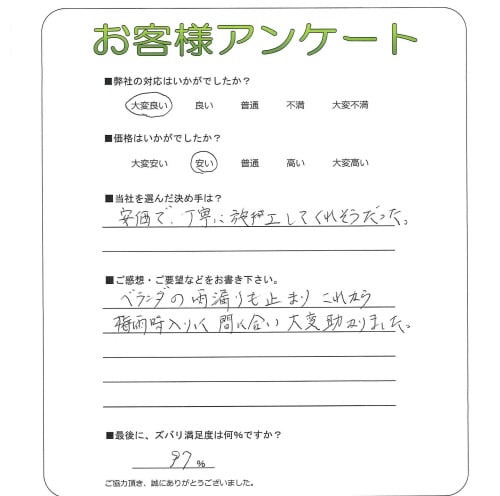 お客様アンケート
■弊社の対応はいかがでしたか？
大変良い 良い 普通 不満 大変不満
■価格はいかがでしたか？
大変安い 安い 普通 高い 大変高い
■当社を選んだ決め手は？
安価で、丁寧に施工してくれそうだった。
■ご感想・ご要望などをお書き下さい。
ベランダの雨漏りも止まり これから
梅雨時入りに間に合い大変助かりました。
■最後に、ズバリ満足度は何％ですか？
97 ％
ご協力頂き、誠にありがとうございました。